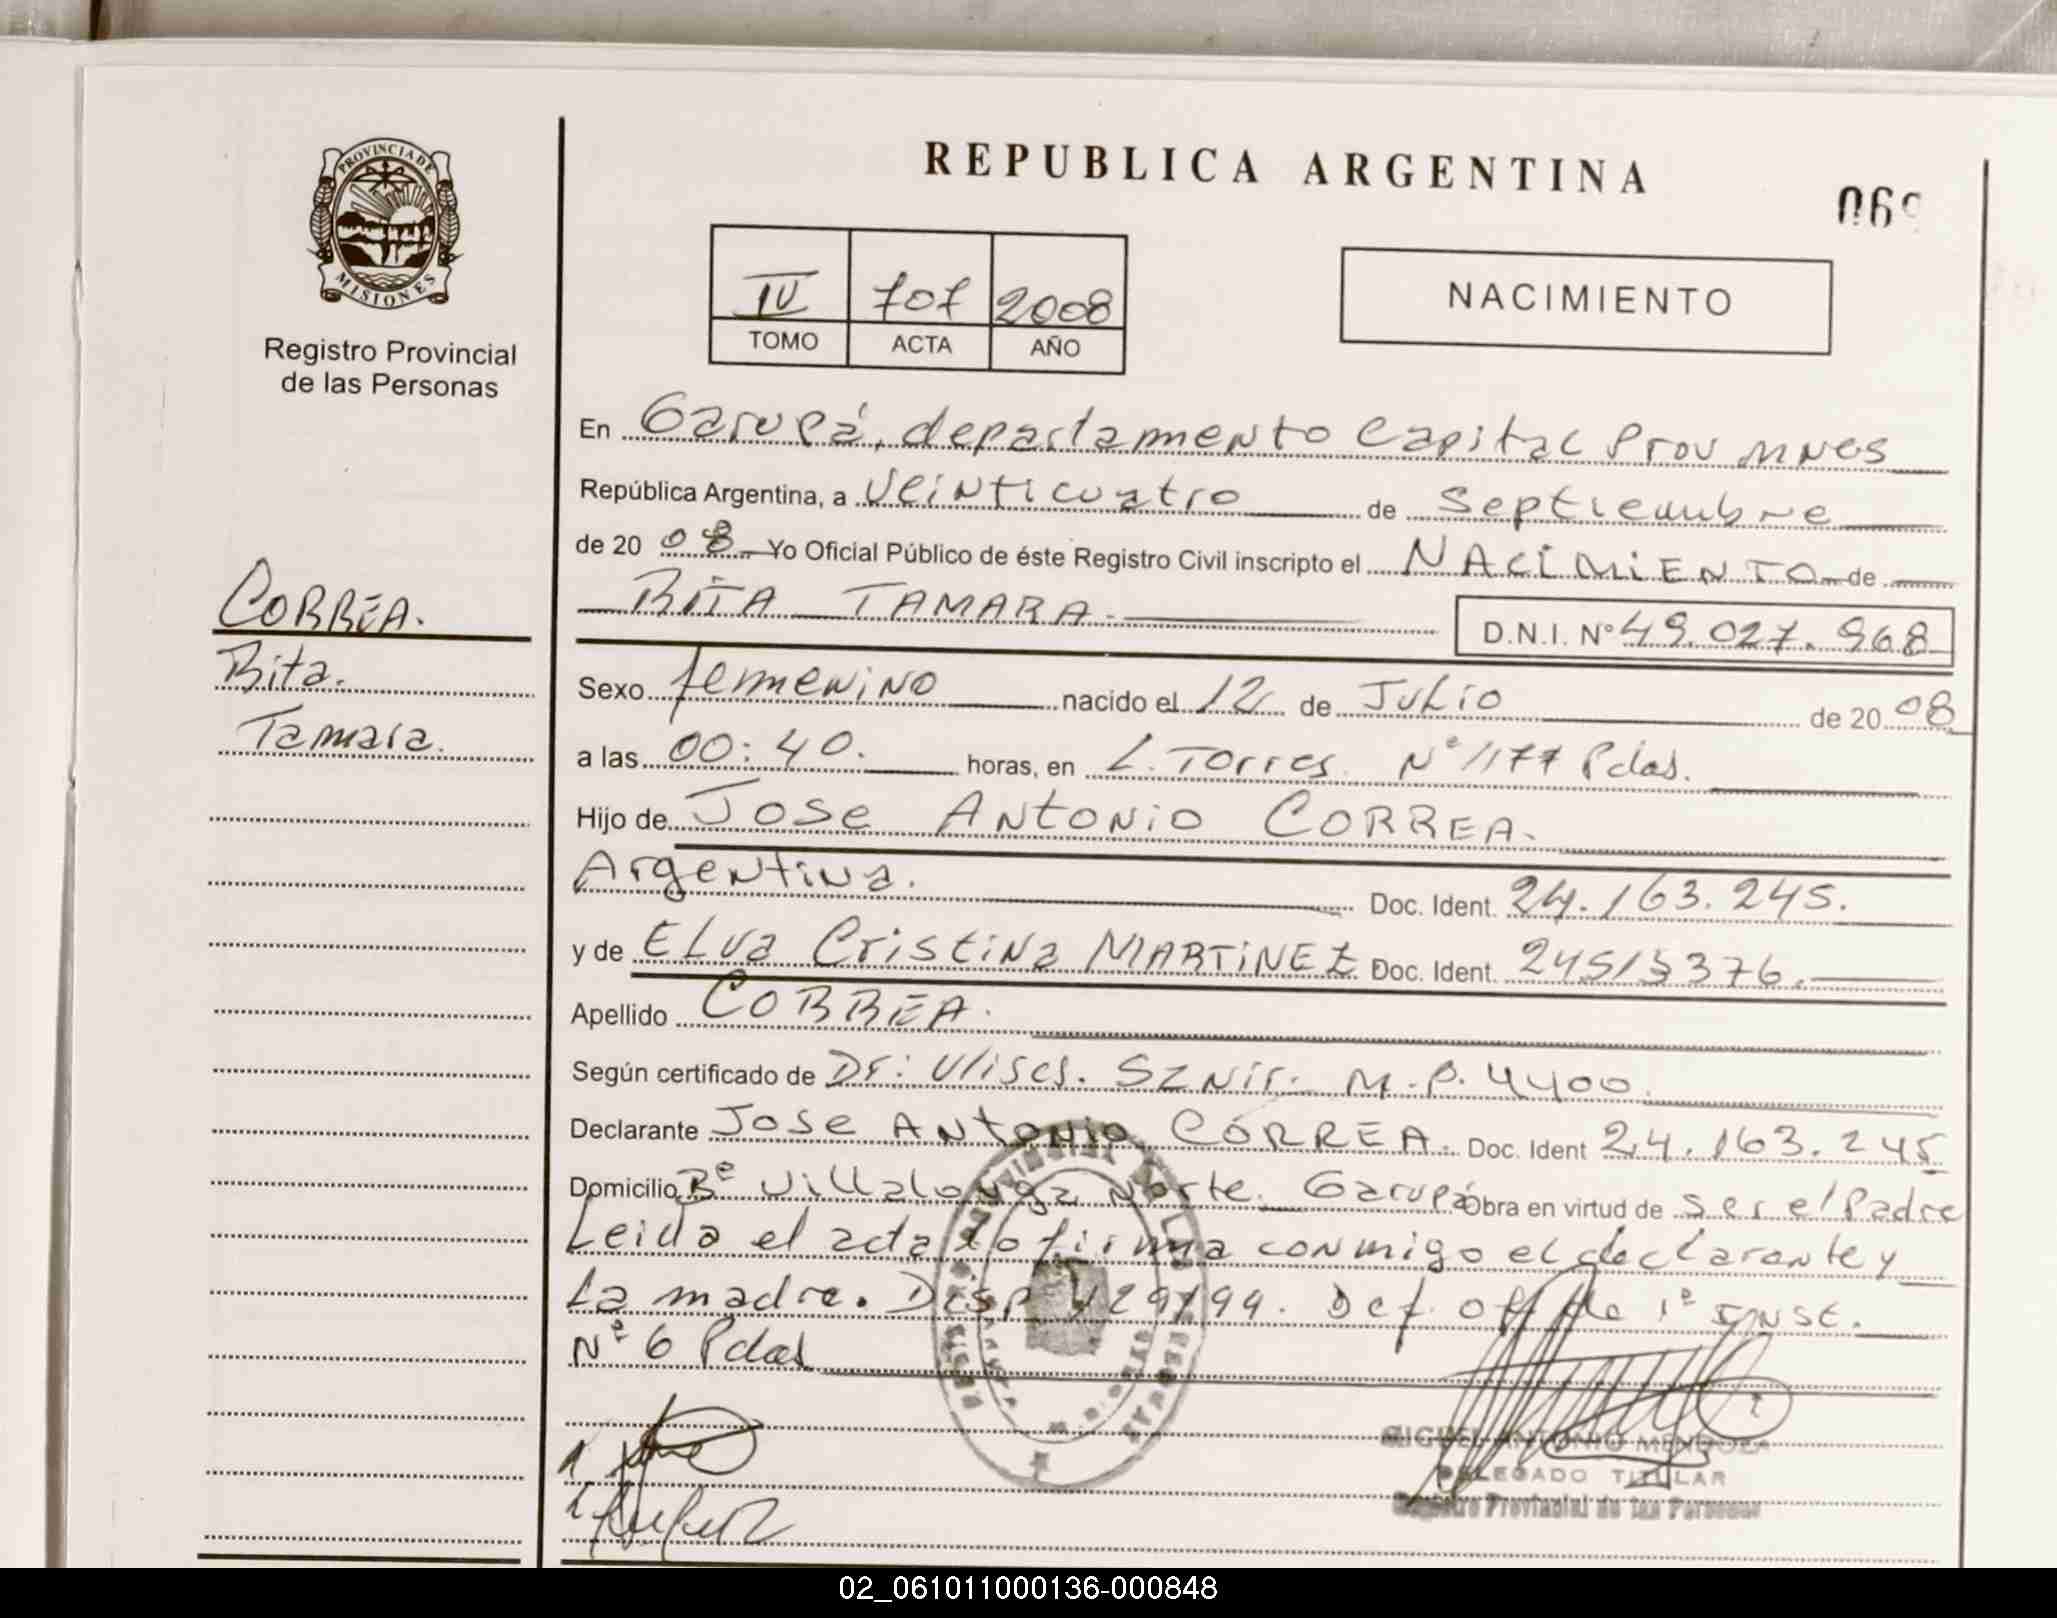 REPUBLICA ARGENTINA
069
PROVINCIA DE
MISIONES
Registro Provincial
de las Personas
IV 707 2008
TOMO ACTA AÑO
NACIMIENTO
En Garupá, departamento Capital Prov Mnes
República Argentina, a veinticuatro de Septiembre
de 2008 Yo Oficial Público de éste Registro Civil inscripto el NACIMIENTO de
RITA TAMARA.
D.N.I. Nº 49.027.968
CORREA.
Rita.
Tamara.
Sexo femenino nacido el 12 de Julio de 2008
a las 00:40. horas, en L. Torres Nº 1177 Pdas.
Hijo de Jose Antonio CORREA.
Argentina. Doc. Ident. 24.163.245.
y de ELva Cristina MARTINEZ Doc. Ident. 24513376.
Apellido CORREA.
Según certificado de Dr: Ulises. Sznir. M.P. 4400
Declarante Jose Antonio CORREA. Doc. Ident 24.163.245
Domicilio Bº Villalonga Norte. Garupá Obra en virtud de ser el Padre
Leida el acta lo firma conmigo el declarante y
La madre. Disp 129/99. Def. Off de 1º Inst.
Nº 6 Pdas
MIGUEL ANTONIO MENDOZA
DELEGADO TITULAR
Registro Provincial de las Personas
02_061011000136-000848